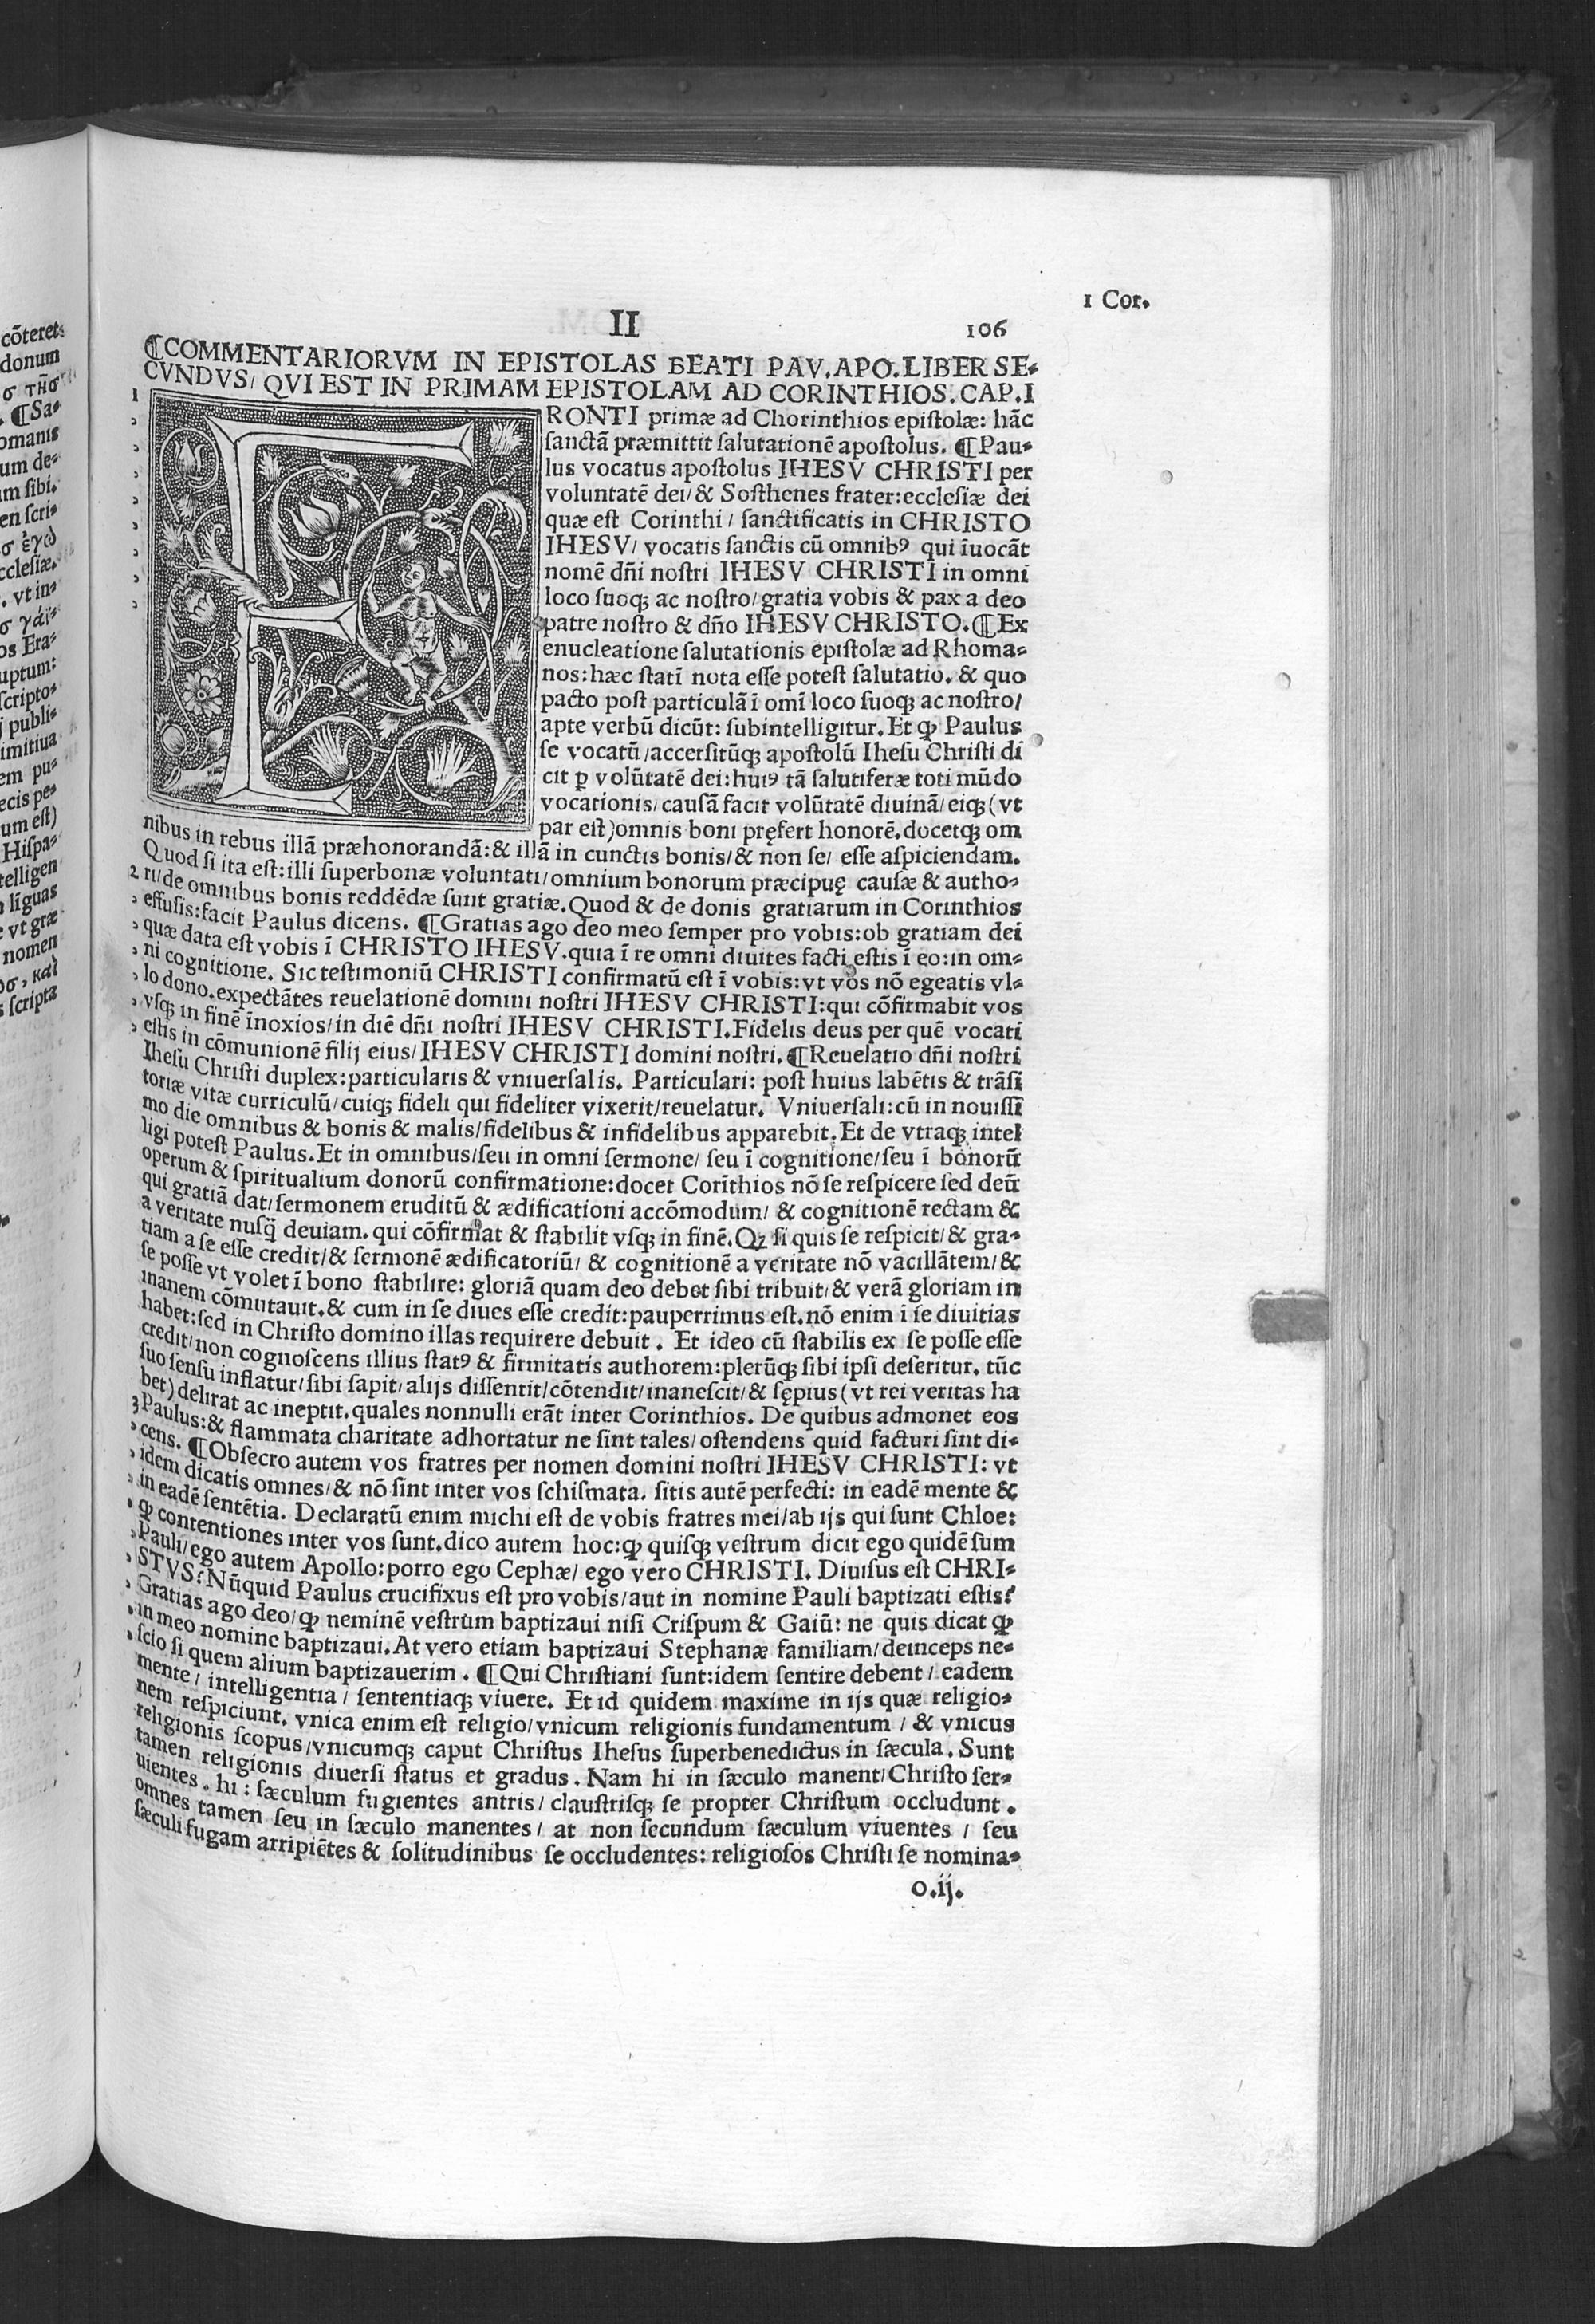 cõteret
donum
σ τησ
¶Sa-
omanis
um de-
m sibi.
en scri-
σ ἐγὼ
cclesiæ.
. vt in-
σ γάϊ-
os Era-
uptum:
scripto-
j publi-
imitiua
em pu-
ecis pe-
um est)
Hispa-
telligen
liguas
vt græ
nomen
σ, καὶ
scripta
1 Cor.
II 106
¶COMMENTARIORVM IN EPISTOLAS BEATI PAV. APO. LIBER SE-
CVNDVS/ QVI EST IN PRIMAM EPISTOLAM AD CORINTHIOS. CAP. I
1 FRONTI primæ ad Chorinthios epistolæ: hãc
sanctã præmittit salutationẽ apostolus. ¶Pau-
lus vocatus apostolus IHESV CHRISTI per
voluntatẽ dei/ & Sosthenes frater: ecclesiæ dei
quæ est Corinthi/ sanctificatis in CHRISTO
IHESV/ vocatis sanctis cũ omnibꝰ qui ĩuocãt
nomẽ dñi nostri IHESV CHRISTI in omni
loco suoqꝫ ac nostro/ gratia vobis & pax a deo
patre nostro & dño IHESV CHRISTO. ¶Ex
enucleatione salutationis epistolæ ad Rhoma-
nos: hæc statĩ nota esse potest salutatio. & quo
pacto post particulã ĩ omĩ loco suoqꝫ ac nostro/
apte verbũ dicũt: subintelligitur. Et ꝙ Paulus
se vocatũ/ accersitũqꝫ apostolũ Ihesu Christi di
cit ꝑ volũtatẽ dei: huiꝰ tã salutiferæ toti mũdo
vocationis/ causã facit volũtatẽ diuinã/ eiqꝫ (vt
par est) omnis boni pręfert honorẽ. docetqꝫ om
nibus in rebus illã præhonorandã: & illã in cunctis bonis/ & non se/ esse aspiciendam.
Quod si ita est: illi superbonæ voluntati/ omnium bonorum præcipuę causæ & autho-
2 ri/ de omnibus bonis reddẽdæ sunt gratiæ. Quod & de donis gratiarum in Corinthios
effusis: facit Paulus dicens. ¶Gratias ago deo meo semper pro vobis: ob gratiam dei
quæ data est vobis ĩ CHRISTO IHESV. quia ĩ re omni diuites facti estis ĩ eo: in om-
ni cognitione. Sic testimoniũ CHRISTI confirmatũ est ĩ vobis: vt vos nõ egeatis vl-
lo dono. expectãtes reuelationẽ domini nostri IHESV CHRISTI: qui cõfirmabit vos
vsqꝫ in finẽ ĩnoxios/ in diẽ dñi nostri IHESV CHRISTI. Fidelis deus per quẽ vocati
estis in cõmunionẽ filij eius/ IHESV CHRISTI domini nostri. ¶Reuelatio dñi nostri
Ihesu Christi duplex: particularis & vniuersalis. Particulari: post huius labẽtis & trãsi
toriæ vitæ curriculũ/ cuiqꝫ fideli qui fideliter vixerit/ reuelatur. Vniuersali: cũ in nouissĩ
mo die omnibus & bonis & malis/ fidelibus & infidelibus apparebit. Et de vtraqꝫ intel
ligi potest Paulus. Et in omnibus/ seu in omni sermone/ seu ĩ cognitione/ seu ĩ bonorũ
operum & spiritualium donorũ confirmatione: docet Corĩthios nõ se respicere sed deũ
qui gratiã dat/ sermonem eruditũ & ædificationi accõmodum/ & cognitionẽ rectam &
a veritate nusq̃ deuiam. qui cõfirmat & stabilit vsqꝫ in finẽ. Qꝫ si quis se respicit/ & gra-
tiam a se esse credit/ & sermonẽ ædificatoriũ/ & cognitionẽ a veritate nõ vacillãtem/ &
se posse vt volet ĩ bono stabilire: gloriã quam deo debet sibi tribuit/ & verã gloriam in
inanem cõmutauit. & cum in se diues esse credit: pauperrimus est. nõ enim ĩ se diuitias
habet: sed in Christo domino illas requirere debuit. Et ideo cũ stabilis ex se posse esse
credit/ non cognoscens illius statꝰ & firmitatis authorem: plerũqꝫ sibi ipsi deseritur. tũc
suo sensu inflatur/ sibi sapit/ alijs dissentit/ cõtendit/ inanescit/ & sępius (vt rei veritas ha
bet) delirat ac ineptit. quales nonnulli erãt inter Corinthios. De quibus admonet eos
3 Paulus: & flammata charitate adhortatur ne sint tales/ ostendens quid facturi sint di-
cens. ¶Obsecro autem vos fratres per nomen domini nostri IHESV CHRISTI: vt
idem dicatis omnes/ & nõ sint inter vos schismata. sitis autẽ perfecti: in eadẽ mente &
in eadẽ sentẽtia. Declaratũ enim michi est de vobis fratres mei/ ab ijs qui sunt Chloe:
ꝙ contentiones inter vos sunt. dico autem hoc: ꝙ quisqꝫ vestrum dicit ego quidẽ sum
Pauli/ ego autem Apollo: porro ego Cephæ/ ego vero CHRISTI. Diuisus est CHRI-
STVS? Nũquid Paulus crucifixus est pro vobis/ aut in nomine Pauli baptizati estis?
Gratias ago deo/ ꝙ neminẽ vestrum baptizaui nisi Crispum & Gaiũ: ne quis dicat ꝙ
in meo nomine baptizaui. At vero etiam baptizaui Stephanæ familiam/ deinceps ne-
scio si quem alium baptizauerim. ¶Qui Christiani sunt: idem sentire debent/ eadem
mente/ intelligentia/ sententiaqꝫ viuere. Et id quidem maxime in ijs quæ religio-
nem respiciunt. vnica enim est religio/ vnicum religionis fundamentum/ & vnicus
religionis scopus/ vnicumqꝫ caput Christus Ihesus superbenedictus in sæcula. Sunt
tamen religionis diuersi status et gradus. Nam hi in sæculo manent/ Christo ser-
uientes. hi: sæculum fugientes antris/ claustrisqꝫ se propter Christum occludunt.
omnes tamen seu in sæculo manentes/ at non secundum sæculum viuentes/ seu
sæculi fugam arripiẽtes & solitudinibus se occludentes: religiosos Christi se nomina-
o.ij.